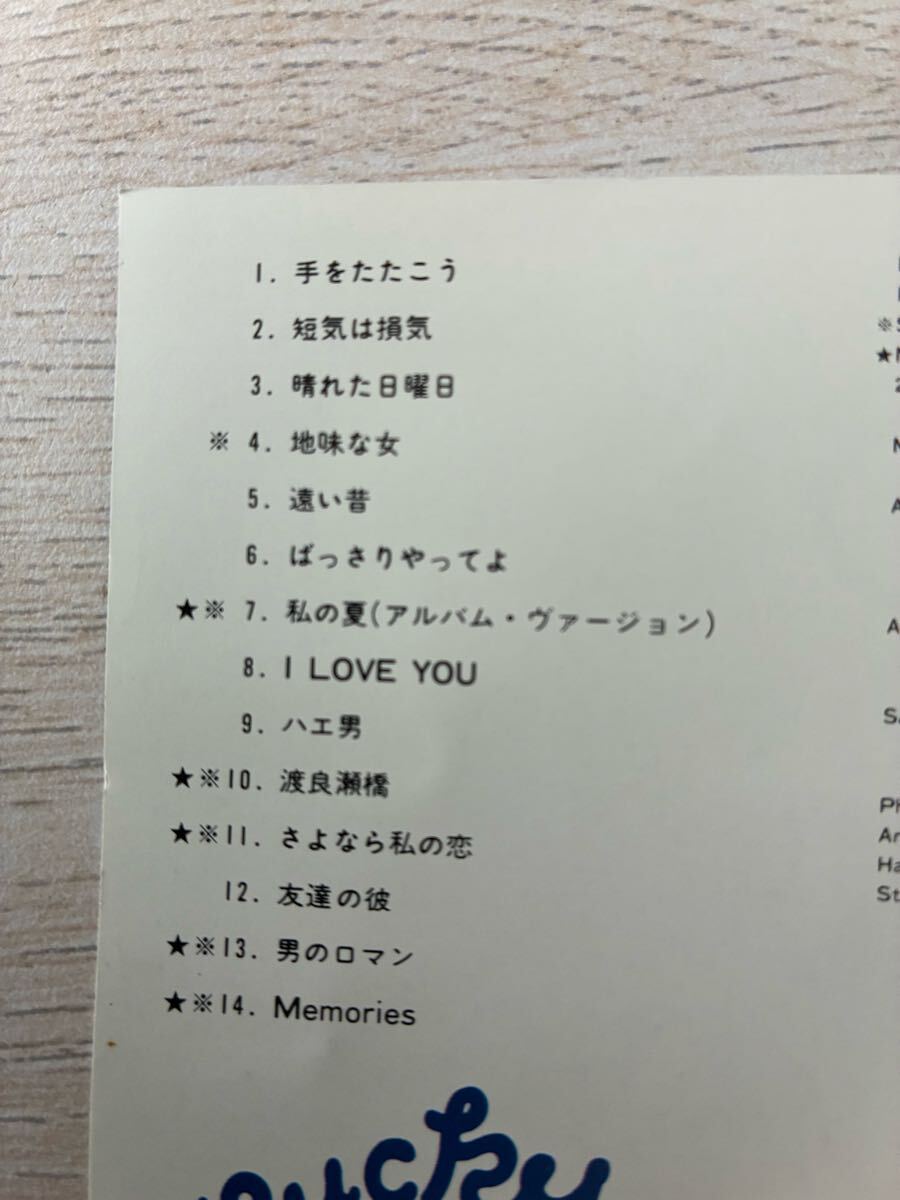 1. 手をたたこう
2. 短気は損気
3. 晴れた日曜日
※ 4. 地味な女
5. 遠い昔
6. ばっさりやってよ
★※ 7. 私の夏(アルバム・ヴァージョン)
8. I LOVE YOU
9. ハエ男
★※10. 渡良瀬橋
★※11. さよなら私の恋
12. 友達の彼
★※13. 男のロマン
★※14. Memories